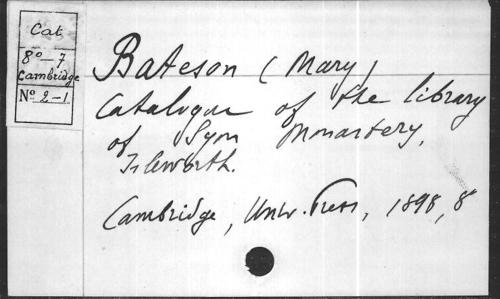 Cat
8º-7
Cambridge
Nº 2-1
Bateson (Mary)
Catalogue of the library
of Syon Monastery,
Isleworth.
Cambridge, Univ. Press, 1898, 8º